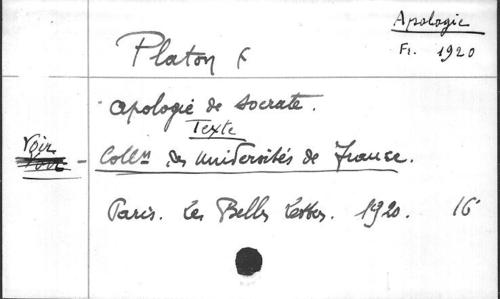 Apologie
Fr. 1920
Platon
Apologie de Socrate.
Texte
Voir
Collon des Universités de France.
Paris. Les Belles Lettres. 1920. 16°